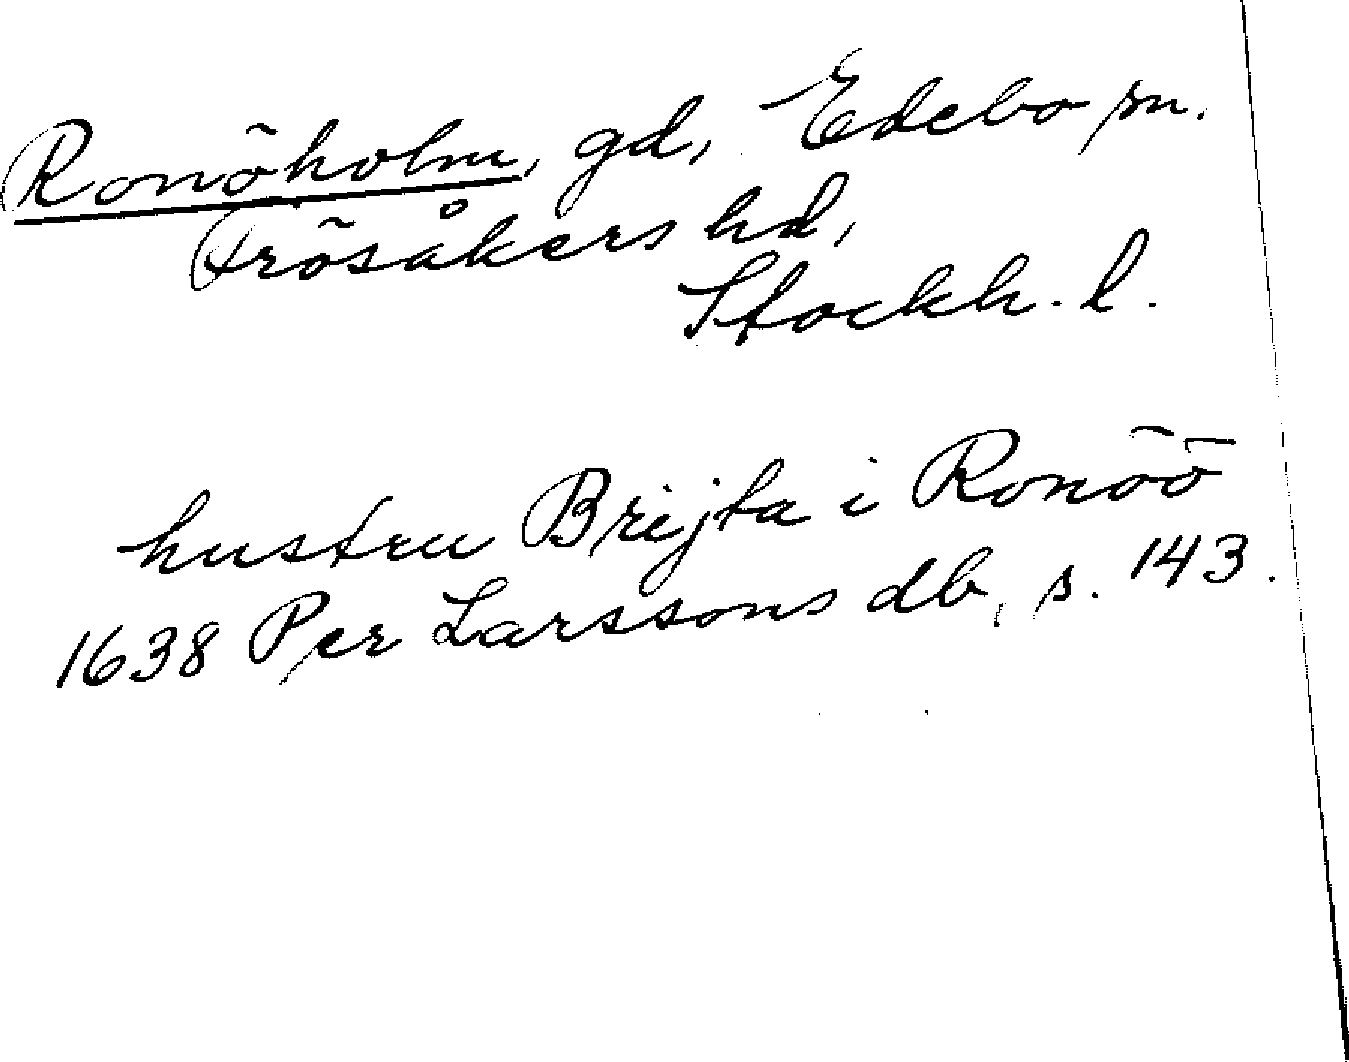 Ronöholm, gd, Edebo sn.
Frösåkers hd,
Stockh. l.
hustru Brijta i Ronöö
1638 Per Larssons db, s. 143.